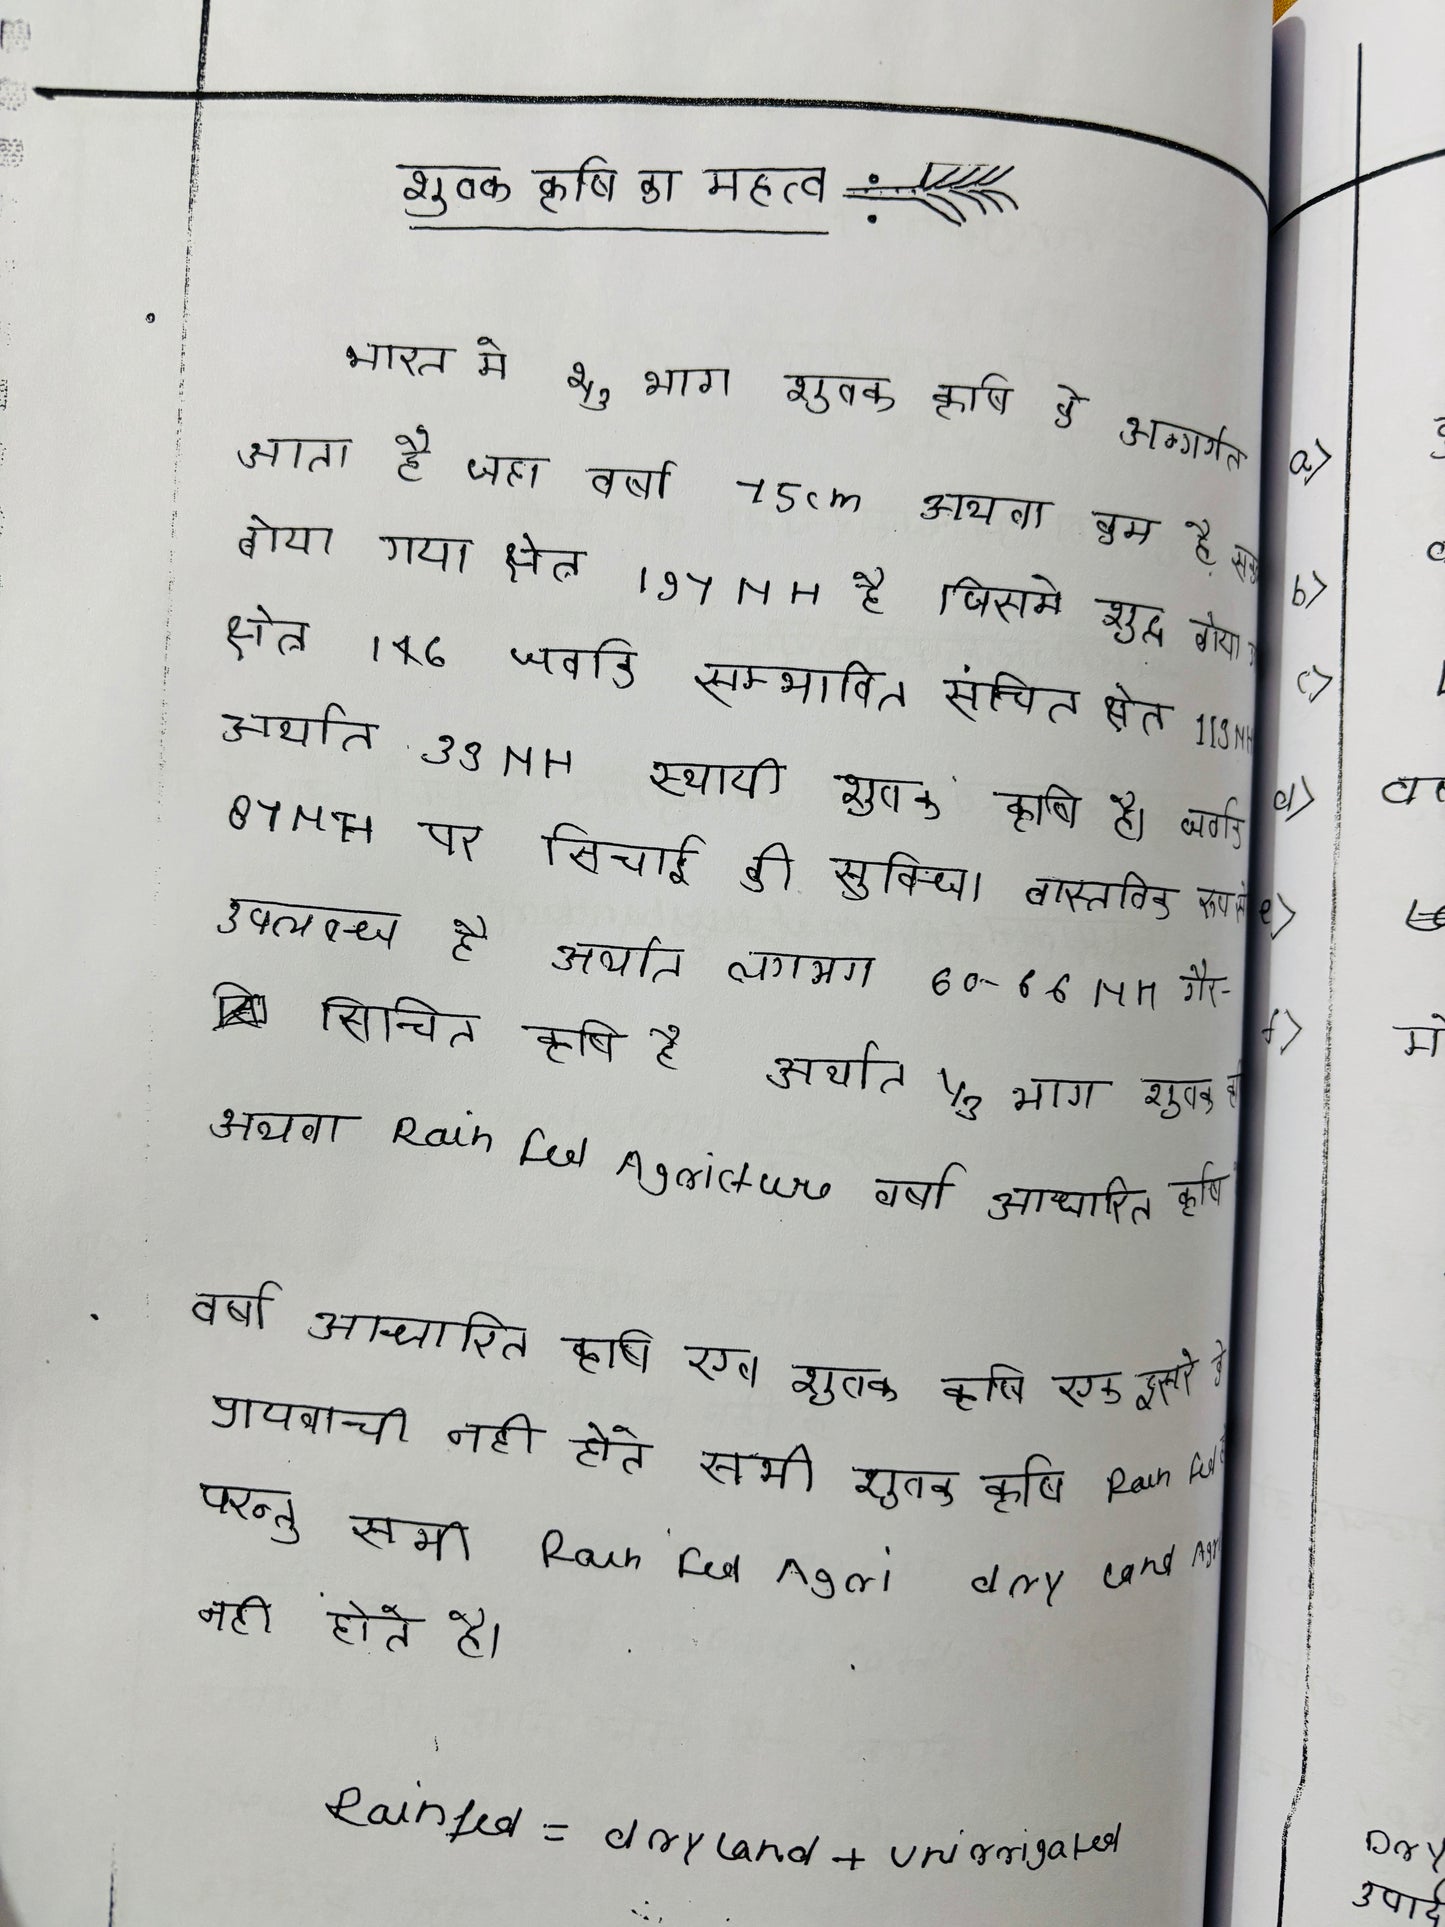 शुष्क कृषि का महत्व
भारत मे भाग शुष्क कृषि के अन्तर्गत
आता है जहा वर्षा 75cm अथवा कम है
बोया गया क्षेत्र 197 MH है जिसमे शुद्ध बोया
क्षेत्र 146 जबकि सम्भावित संचित क्षेत्र 113 MH
अर्थात 33 MH स्थायी शुष्क कृषि है। जबकि
87 MH पर सिचाई की सुविधा वास्तविक रूप से
उपलब्ध है अर्थात लगभग 60-66 MH गैर-
सिन्चित कृषि है अर्थात 1/3 भाग शुष्क
अथवा Rain fed Agricture वर्षा आधारित कृषि
वर्षा आधारित कृषि एव शुष्क कृषि एक दूसरे के
प्रायवाची नही होते सभी शुष्क कृषि Rain fed
परन्तु सभी Rain fed Agri dry land
नही होते है।
Rainfed = dryland + unirrigated
a)
b)
c)
d)
e)
f)
मे
Dry